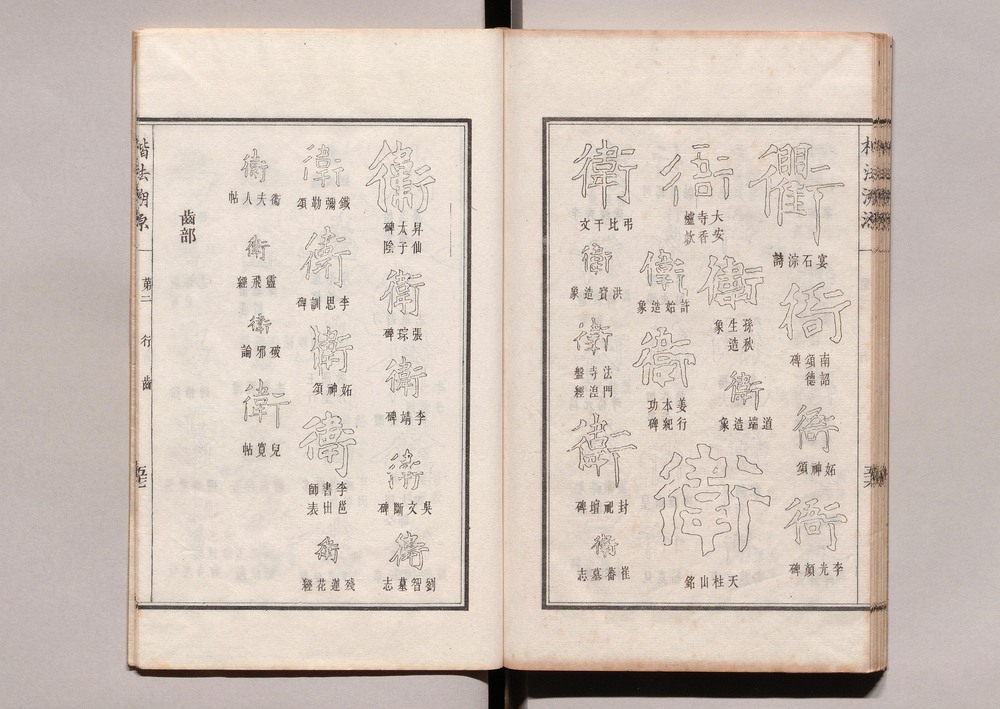 衢
宴石淙詩
衙
南詔頌德碑
衙
妬神頌
衙
李光顏碑
衙
大安寺香爐款
衛
孫秋生造象
衛
道端造象
衛
許始造象
衛
姜行本紀功碑
衛
天柱山銘
衛
弔比干文
衛
洪寶造象
衛
法門寺湼盤經
衛
封祀壇碑
衛
崔蕃墓志
衛
昇仙太子碑陰
衛
張琮碑
衛
李靖碑
衛
吳文斷碑
衛
劉智墓志
衛
鐵彌勒頌
衛
李思訓碑
衛
妬神頌
衛
李邕書出師表
衛
殘蓮花經
衛
衛夫人帖
衛
靈飛經
衛
破邪論
衛
兒寬帖
齒部
楷法溯源
第二
行
齒